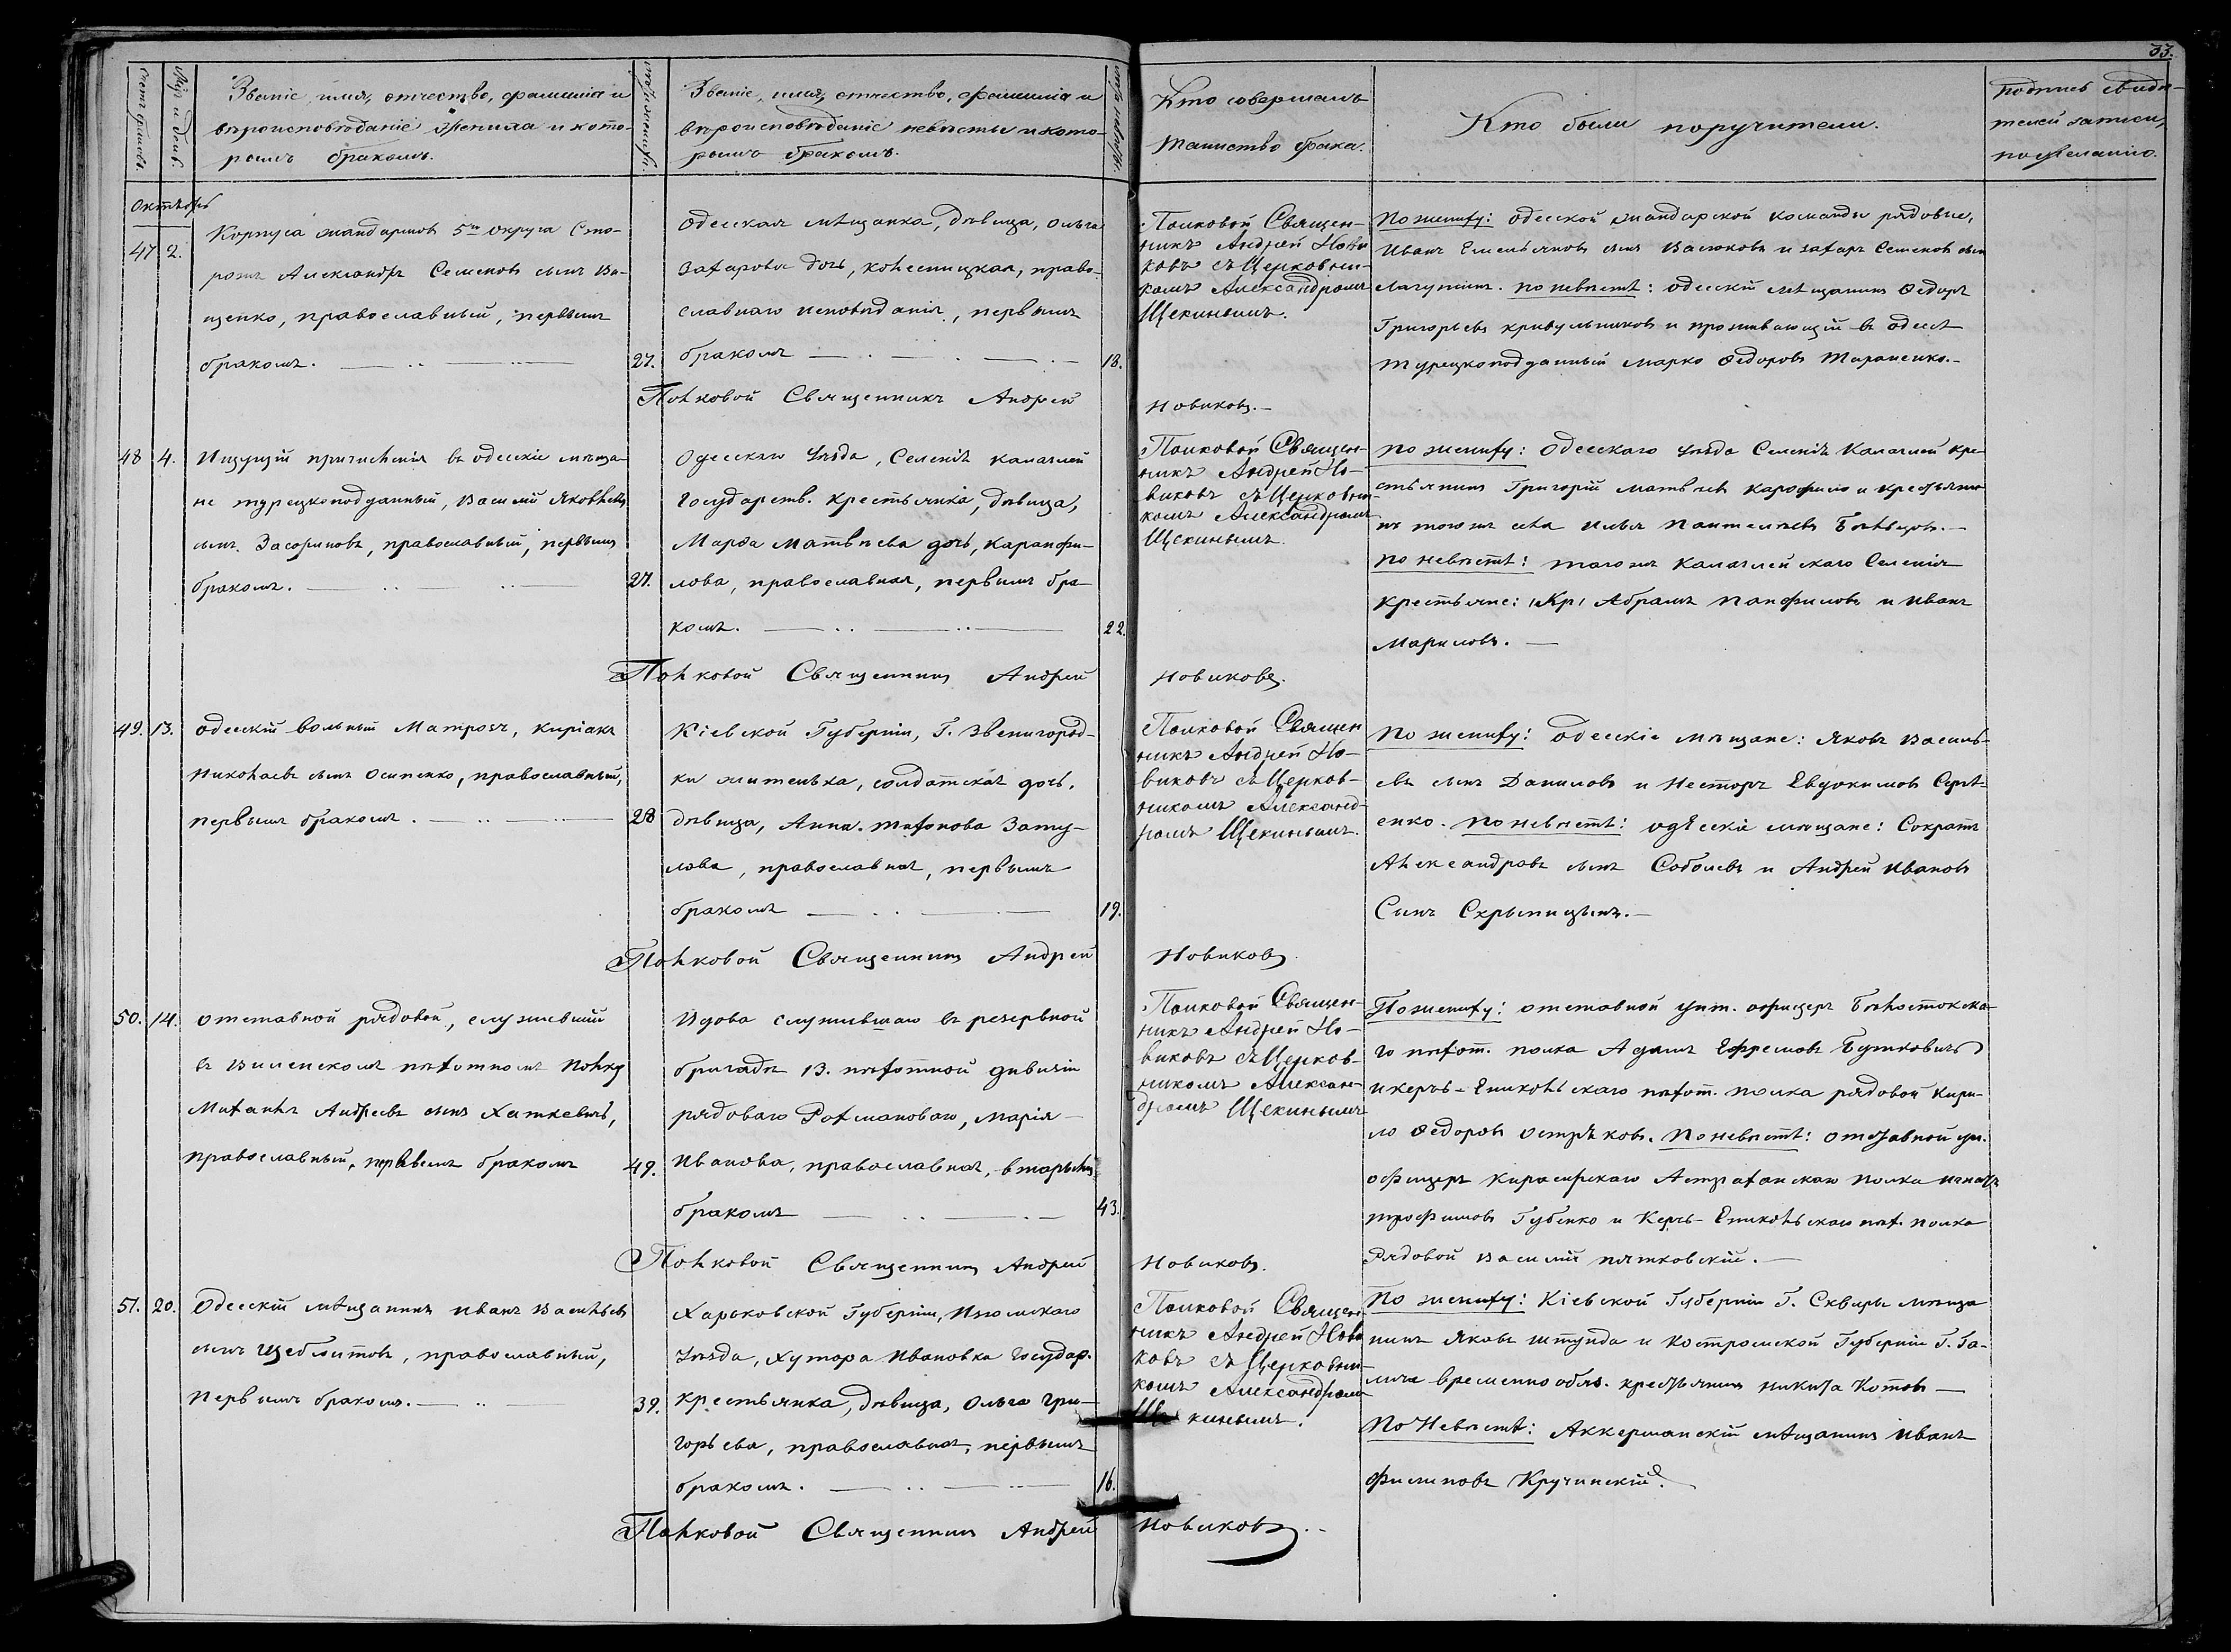 33.
Счетъ браковъ.
Мѣс. и день.
Званіе, имя, отчество, фамилія и
вѣроисповѣданіе жениха и кото-
рымъ бракомъ.
Лѣта жениха.
Званіе, имя, отчество, фамилія и
вѣроисповѣданіе невѣсты и кото-
рымъ бракомъ.
Лѣта невѣсты.
Кто совершалъ
таинство брака.
Кто были поручители.
Подпись свидѣ-
телей записи,
по желанію.
Октябрь
47 2.
Корпуса жандармовъ 5го округа
Александръ Семеновъ сынъ Ва-
щенко, православный, первымъ
бракомъ.
27.
Одесская мѣщанка, дѣвица, Ольга
Захарова дочь, Колесницкая, право-
славнаго исповѣданія, первымъ
бракомъ
18.
Полковой Священ-
никъ Андрей Нови
ковъ съ Церковни-
комъ Александромъ
Щекинымъ.
По жениху: одесской жандарской команды рядовые,
Иванъ Емельяновъ сынъ Васюковъ и Захаръ Семеновъ сынъ
Лагутинъ. По невѣстѣ: одесскій мѣщанинъ Федоръ
Григорьевъ Кривульниковъ и проживающій въ Одессѣ
турецкоподданный Марко Федоровъ Тараненко.
Полковой Священникъ Андрей Новиковъ.
48 4.
Ищущій причисленія въ одесскіе мѣща-
не турецкоподданный, Василій Яковлевъ
сынъ Засориновъ, православный, первымъ
бракомъ.
27.
Одесскаго уѣзда, Селенія Калаглеи
Государств. крестьянка, дѣвица,
Марфа Матвѣева дочь, Каранфи-
лова, православная, первымъ бра
комъ.
22.
Полковой Священ-
никъ Андрей Но-
виковъ съ Церковни-
комъ Александромъ
Щекинымъ.
По жениху: Одесскаго уѣзда Селенія Калаглеи кре-
стьянинъ Григорій Матвѣевъ и крестьяни
нъ тогожъ села Илья Пантелѣевъ
По невѣстѣ: тогожъ Калаглейскаго Селенія
крестьяне: Абрамъ Панфиловъ и Иванъ
Мариловъ.
Полковой Священникъ Андрей Новиковъ.
49. 13.
Одесскій вольный Матрозъ, Киріакъ
Николаевъ сынъ Осипенко, православный,
первымъ бракомъ.
28
Кіевской Губерніи, Г. Звенигород-
ки жителька, солдатская дочь,
дѣвица, Анна Тихонова Зату-
лова, православная, первымъ
бракомъ
19.
Полковой Священ
никъ Андрей Но-
виковъ съ Церков-
никомъ Александ-
ромъ Щекинымъ.
По жениху: Одесскіе мѣщане: Яковъ Василь-
евъ сынъ Даниловъ и Несторъ Евдокимовъ Сергѣ-
енко. По невѣстѣ: одесскіе мѣщане: Сократъ
Александровъ сынъ Соболевъ и Андрей Ивановъ
Сынъ Скрыпицынъ.
Полковой Священникъ Андрей Новиковъ.
50. 14.
Отставной рядовой, служившій
въ Виленскомъ пѣхотномъ полку
Михаилъ Андреевъ сынъ Хаткевичъ,
православный, первымъ бракомъ
49.
Вдова служившаго въ резервной
бригадѣ 13. пѣхотной дивизіи
рядоваго Рохмановаго, Марія
Иванова, православная, вторымъ
бракомъ
43.
Полковой Священ-
никъ Андрей Но-
виковъ съ Церков-
никомъ Алексан-
дромъ Щекинымъ
По жениху: отставной унт. офицеръ Бѣлостокска-
го пѣхот. полка Адамъ Ефремовъ Буткевичъ
и Керчь-Еникольскаго пѣхот. полка рядовой Кири-
ло Федоровъ Остряковъ. По невѣстѣ: отставной ун.
офицеръ Кирасирскаго Астраханскаго полка Игнатъ
Трофимовъ Губенко и Керчь-Еникольскаго пѣх. полка
Рядовой Василій Пятковскій.
Полковой Священникъ Андрей Новиковъ.
51. 20.
Одесскій мѣщанинъ Иванъ Васильевъ
сынъ Щеблыковъ, православный,
первымъ бракомъ.
39.
Харьковской Губерніи, Изюмскаго
Уѣзда, хутора Ивановка Государ.
крестьянка, дѣвица, Ольга Гри-
горьева, православная, первымъ
бракомъ.
16.
Полковой Священ
никъ Андрей Нови
ковъ съ Церковни-
комъ Александромъ
Щекинымъ.
По жениху: Кіевской Губерніи Г. Сквиры мѣща
нинъ Яковъ Штунда и Костромской Губерніи Г. Га-
лича временно обяз. крестьянинъ Никита Котовъ
По Невѣстѣ: Аккерманскій мѣщанинъ Иванъ
Филиповъ Кручинскій.
Полковой Священникъ Андрей Новиковъ.